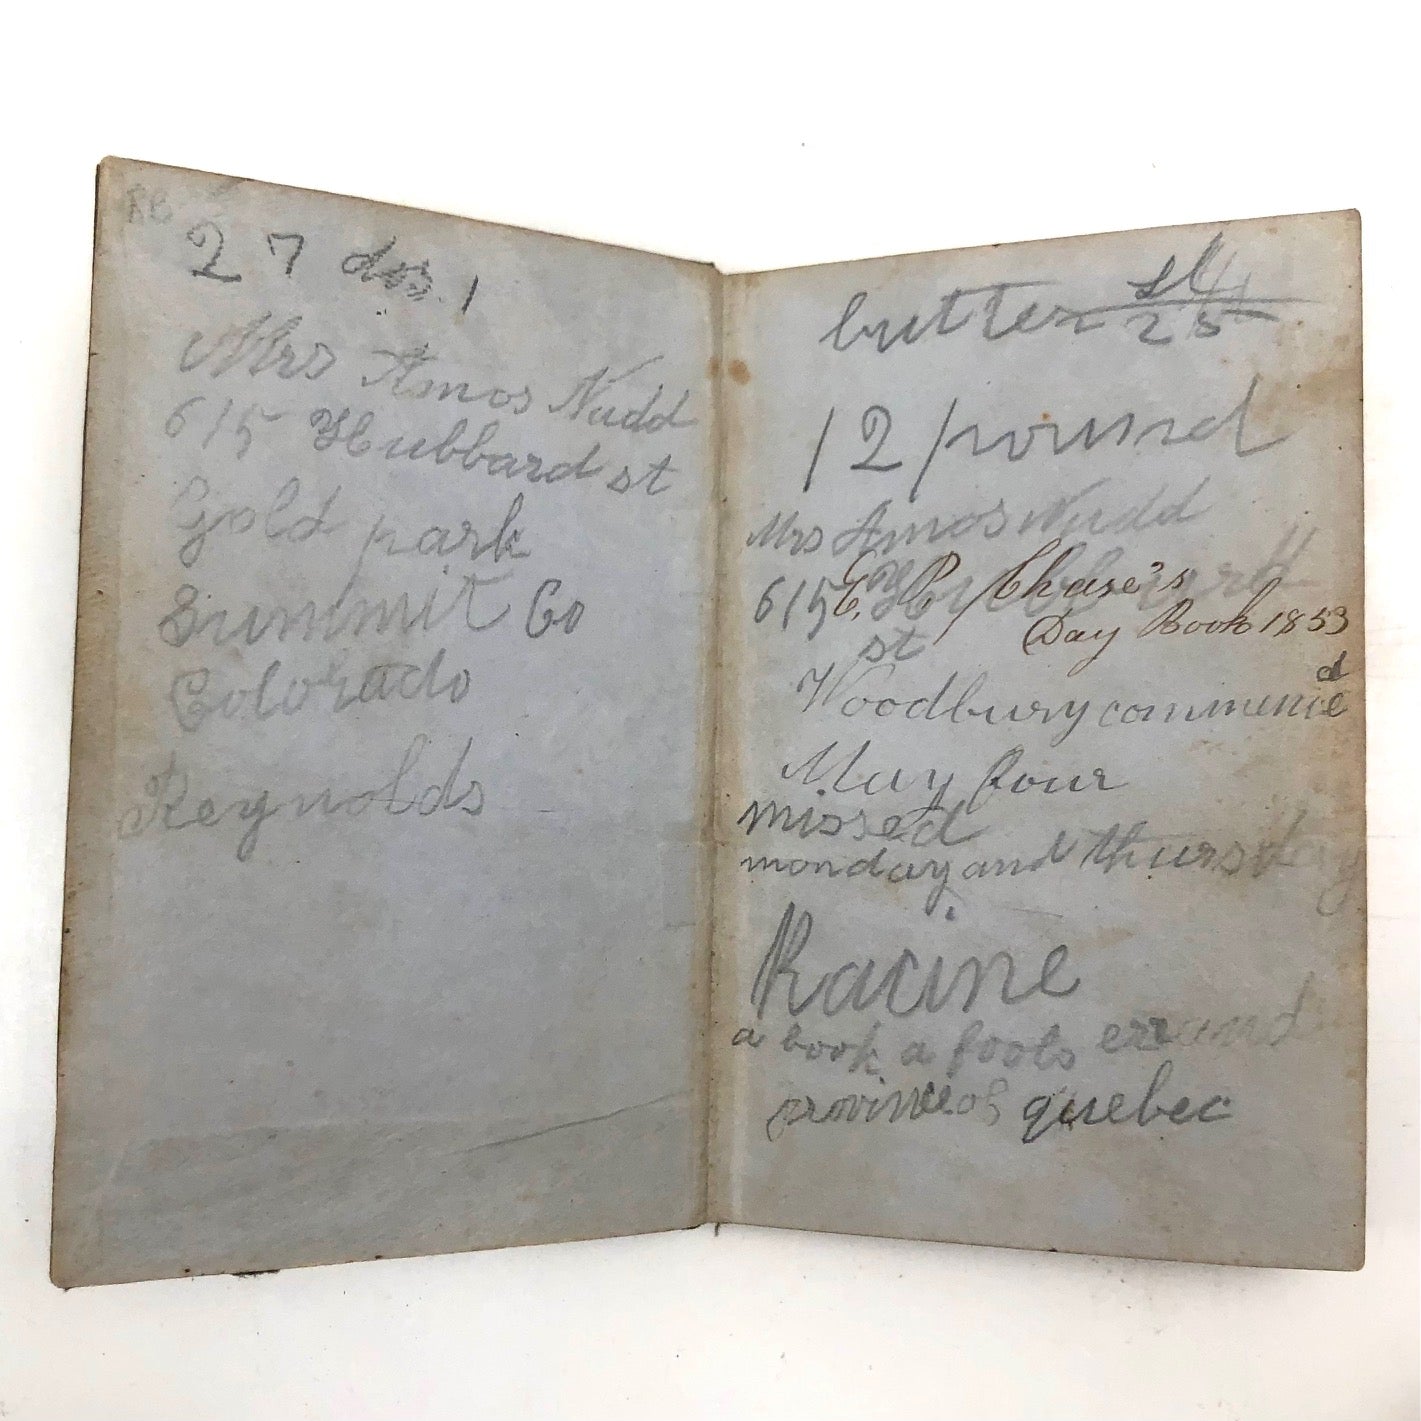 RB
27
Mrs Amos Nudd
615 Hubbard st
Gold park
Summit Co
Colorado
Reynolds
butter
25
12 pound
Mrs Amos Nudd
615 Hubbard
st
C. P. Chase's
Day Book 1853
Woodbury commence
d
May four
missed
monday and thursday
Racine
a book a fools errand
province of quebec